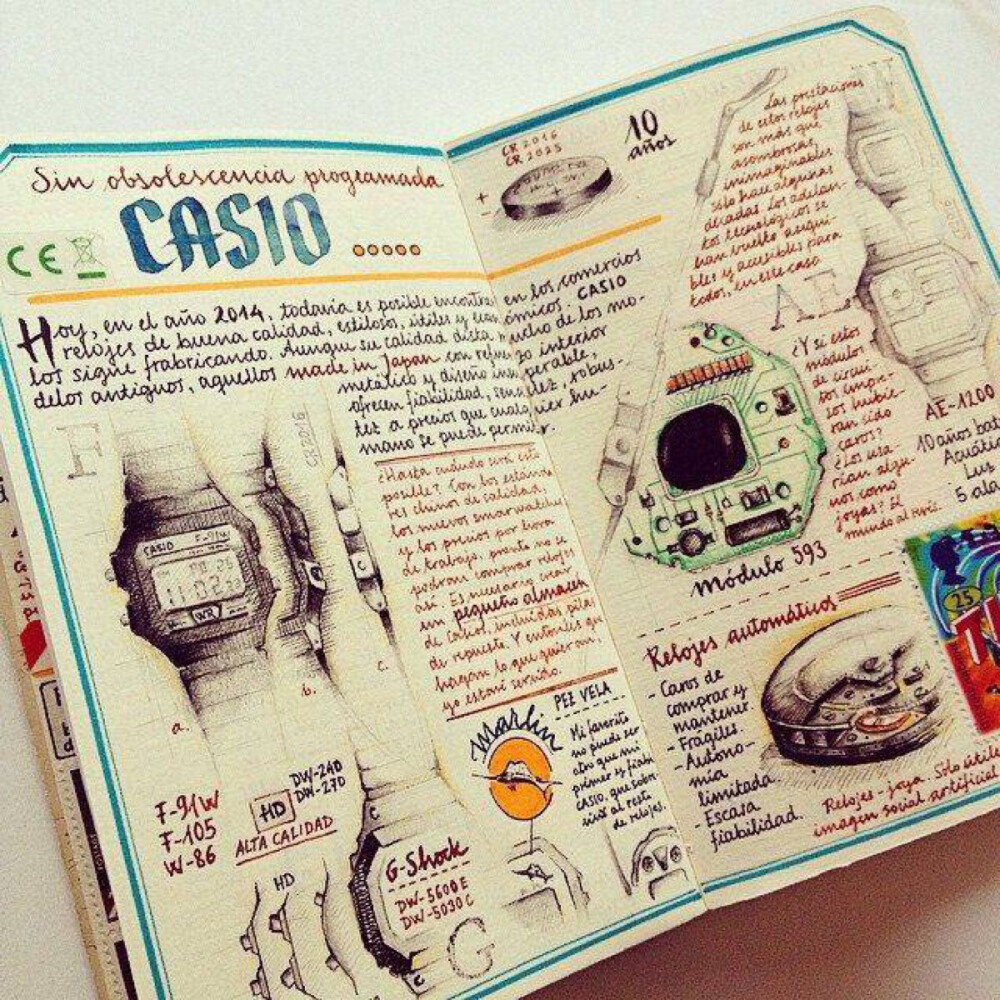 Sin obsolescencia programada
CE
CASIO
Hoy, en el año 2014, todavía es posible encontrar en los comercios
relojes de buena calidad, estilosos, útiles y económicos. CASIO
los sigue frabricando. Aunque su calidad dista mucho de los mo-
delos antiguos, aquellos made in Japan con refuerzo interior
metálico y diseño insuperable,
ofrecen fiabilidad, sencillez, robus-
tez a precios que cualquier hu-
mano se puede permitir.
F
CR2016
CASIO F-91W
WR
a.
b.
c.
¿Hasta cuándo será esto
posible? Con los están-
res chinos de calidad,
los nuevos smarwatches
y los precios por hora
de trabajo, pronto no se
podrán comprar relojes
así. Es necesario crear
un pequeño almacén
de Casios, incluidas pilas
de repuesto. Y entonces que
hagan lo que quieran,
yo estaré servido.
F-91W
F-105
W-86
DW-240
DW-270
HD
ALTA CALIDAD
HD
G-Shock
DW-5600E
DW-5030C
G
Marlin
PEZ VELA
Mi favorito
no puede ser
otro que mi
primer y fiable
CASIO, que sobre-
vivió al resto
de relojes.
CR2016
CR2025
10
años
+
-
Las prestaciones
de estos relojes
son más que
asombrosas,
inimaginables
sólo hace algunas
décadas. Los adelan-
tos tecnológicos se
han vuelto asequi-
bles y accesibles para
todos, en este caso
AE
¿Y si estos
módulos
de circui-
tos impre-
sos hubie-
ran sido
caros?
¿Los usa
rían algu-
nos como
joyas? El
mundo al revés.
módulo 593
AE-1200
10 años
Acuáti
Luz
5 ala
Relojes automáticos
- Caros de
comprar y
mantener.
- Frágiles.
- Autono-
mía
limitada
- Escasa
fiabilidad.
Relojes-joya. Sólo útile
imagen social artificial
25